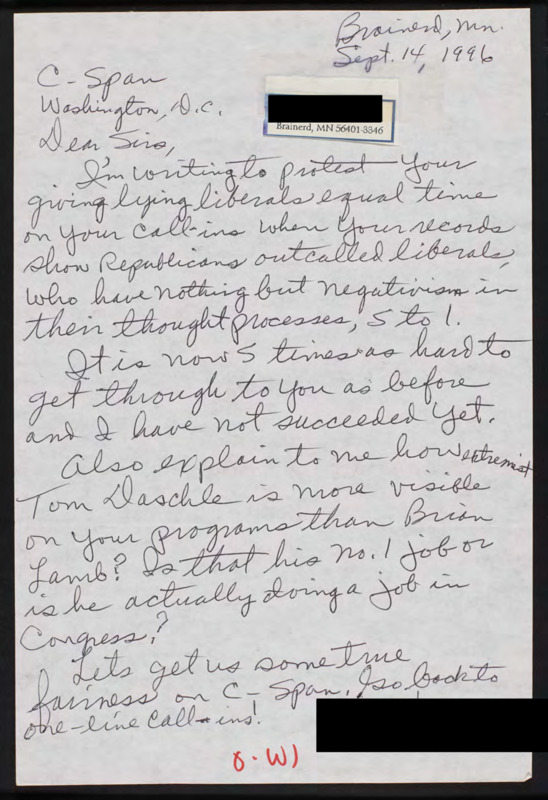 Brainerd, Mn.
Sept. 14, 1996
C-Span
Washington, D.C.
Brainerd, MN 56401-3346
Dear Sirs,
I'm writing to protest Your
giving lying liberals equal time
on your call-ins when Your records
show Republicans outcalled liberals,
who have nothing but negativism in
their thought processes, 5 to 1.
It is now 5 times as hard to
get through to you as before
and I have not succeeded yet.
Also explain to me how extremist
Tom Daschle is more visible
on your programs than Brian
Lamb? Is that his no. 1 job or
is he actually doing a job in
Congress?
Lets get us some true
fairness on C-Span. go back to
one-line call-ins!